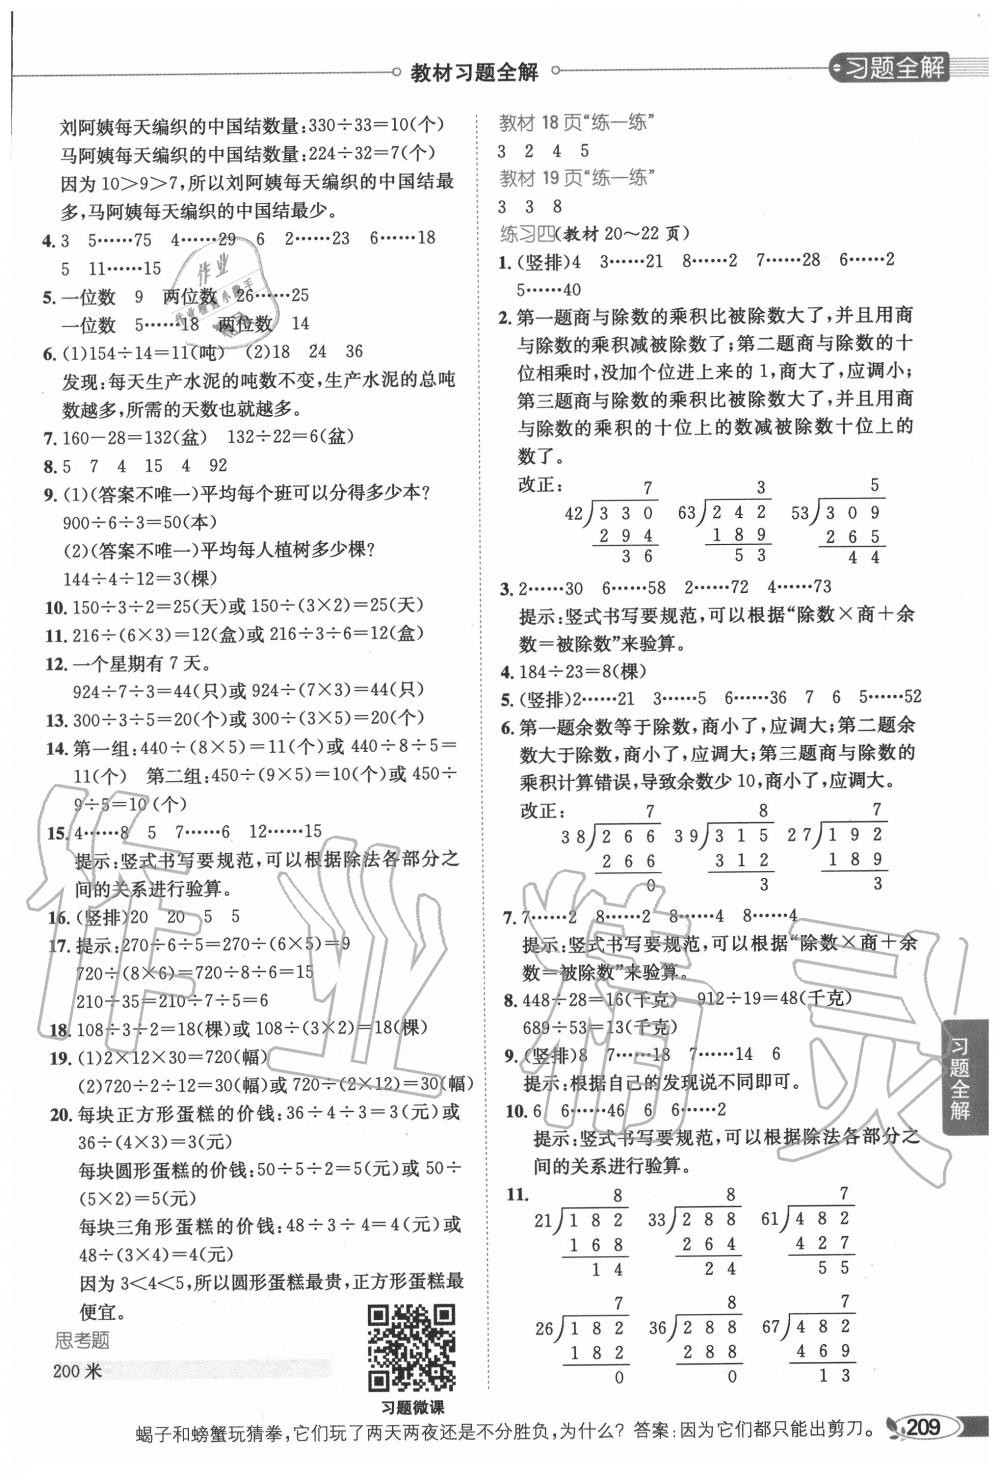 教材习题全解
习题全解
刘阿姨每天编织的中国结数量:330÷33=10(个)
马阿姨每天编织的中国结数量:224÷32=7(个)
因为 10>9>7,所以刘阿姨每天编织的中国结最
多,马阿姨每天编织的中国结最少。
4. 3 5……75 4……29 6 2……23 6……18
5 11……15
5. 一位数 9 两位数 26……25
一位数 5……18 两位数 14
6. (1)154÷14=11(吨) (2)18 24 36
发现:每天生产水泥的吨数不变,生产水泥的总吨
数越多,所需的天数也就越多。
7. 160-28=132(盆) 132÷22=6(盆)
8. 5 7 4 15 4 92
9. (1)(答案不唯一)平均每个班可以分得多少本?
900÷6÷3=50(本)
(2)(答案不唯一)平均每人植树多少棵?
144÷4÷12=3(棵)
10. 150÷3÷2=25(天)或 150÷(3×2)=25(天)
11. 216÷(6×3)=12(盒)或 216÷3÷6=12(盒)
12. 一个星期有 7 天。
924÷7÷3=44(只)或 924÷(7×3)=44(只)
13. 300÷3÷5=20(个)或 300÷(3×5)=20(个)
14. 第一组:440÷(8×5)=11(个)或 440÷8÷5=
11(个) 第二组:450÷(9×5)=10(个)或 450÷
9÷5=10(个)
15. 4……8 5 7……6 12……15
提示:竖式书写要规范,可以根据除法各部分之
间的关系进行验算。
16. (竖排)20 20 5 5
17. 提示:270÷6÷5=270÷(6×5)=9
720÷(8×6)=720÷8÷6=15
210÷35=210÷7÷5=6
18. 108÷3÷2=18(棵)或 108÷(3×2)=18(棵)
19. (1)2×12×30=720(幅)
(2)720÷2÷12=30(幅)或 720÷(2×12)=30(幅)
20. 每块正方形蛋糕的价钱:36÷4÷3=3(元)或
36÷(4×3)=3(元)
每块圆形蛋糕的价钱:50÷5÷2=5(元)或 50÷
(5×2)=5(元)
每块三角形蛋糕的价钱:48÷3÷4=4(元)或
48÷(3×4)=4(元)
因为 3<4<5,所以圆形蛋糕最贵,正方形蛋糕最
便宜。
思考题
200 米
习题微课
教材 18 页“练一练”
3 2 4 5
教材 19 页“练一练”
3 3 8
练习四(教材 20～22 页)
1. (竖排)4 3……21 8……2 7……28 6……2
5……40
2. 第一题商与除数的乘积比被除数大了,并且用商
与除数的乘积减被除数了;第二题商与除数的十
位相乘时,没加个位进上来的 1,商大了,应调小;
第三题商与除数的乘积比被除数大了,并且用商
与除数的乘积的十位上的数减被除数十位上的
数了。
改正: 7 3 5
42 330 63 242 53 309
294 189 265
36 53 44
3. 2……30 6……58 2……72 4……73
提示:竖式书写要规范,可以根据“除数×商+余
数=被除数”来验算。
4. 184÷23=8(棵)
5. (竖排)2……21 3……5 6……36 7 6 5……52
6. 第一题余数等于除数,商小了,应调大;第二题余
数大于除数,商小了,应调大;第三题商与除数的
乘积计算错误,导致余数少 10,商小了,应调大。
改正: 7 8 7
38 266 39 315 27 192
266 312 189
0 3 3
7. 7……2 8……2 8……4 8……4
提示:竖式书写要规范,可以根据“除数×商+余
数=被除数”来验算。
8. 448÷28=16(千克) 912÷19=48(千克)
689÷53=13(千克)
9. (竖排)8 7……18 7……14 6
提示:根据自己的发现说不同即可。
10. 6 6……46 6 6……2
提示:竖式书写要规范,可以根据除法各部分之
间的关系进行验算。
11. 8 8 7
21 182 33 288 61 482
168 264 427
14 24 55
7 8 7
26 182 36 288 67 482
182 288 469
0 0 13
习题全解
蝎子和螃蟹玩猜拳,它们玩了两天两夜还是不分胜负,为什么? 答案:因为它们都只能出剪刀。
209
作业精灵
作业
作业检查小助手